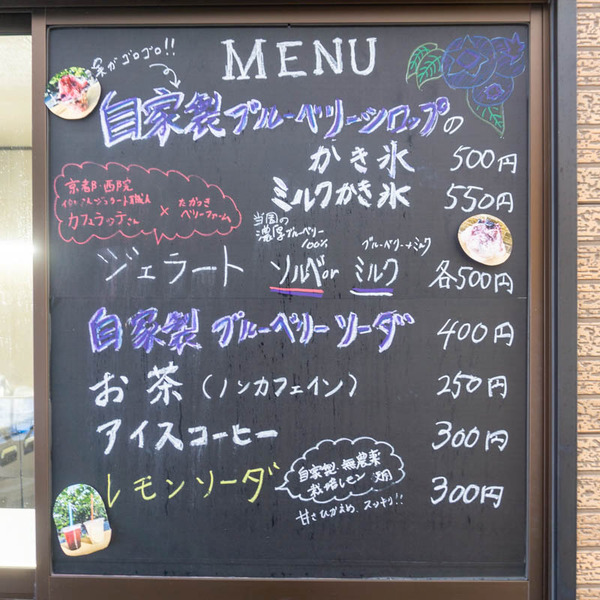 MENU
実がゴロゴロ!!
自家製ブルーベリーシロップの
かき氷 500円
ミルクかき氷 550円
京都・西院
ジェラート職人
カフェラッテさん
×
たかつき
ベリーファーム
当園の
濃厚ブルーベリー
100%
ブルーベリー+ミルク
ジェラート ソルベor ミルク 各500円
自家製 ブルーベリーソーダ 400円
お茶(ノンカフェイン) 250円
アイスコーヒー 300円
レモンソーダ 300円
自家製・無農薬
栽培レモン
甘さひかえめ、スッキリ!!